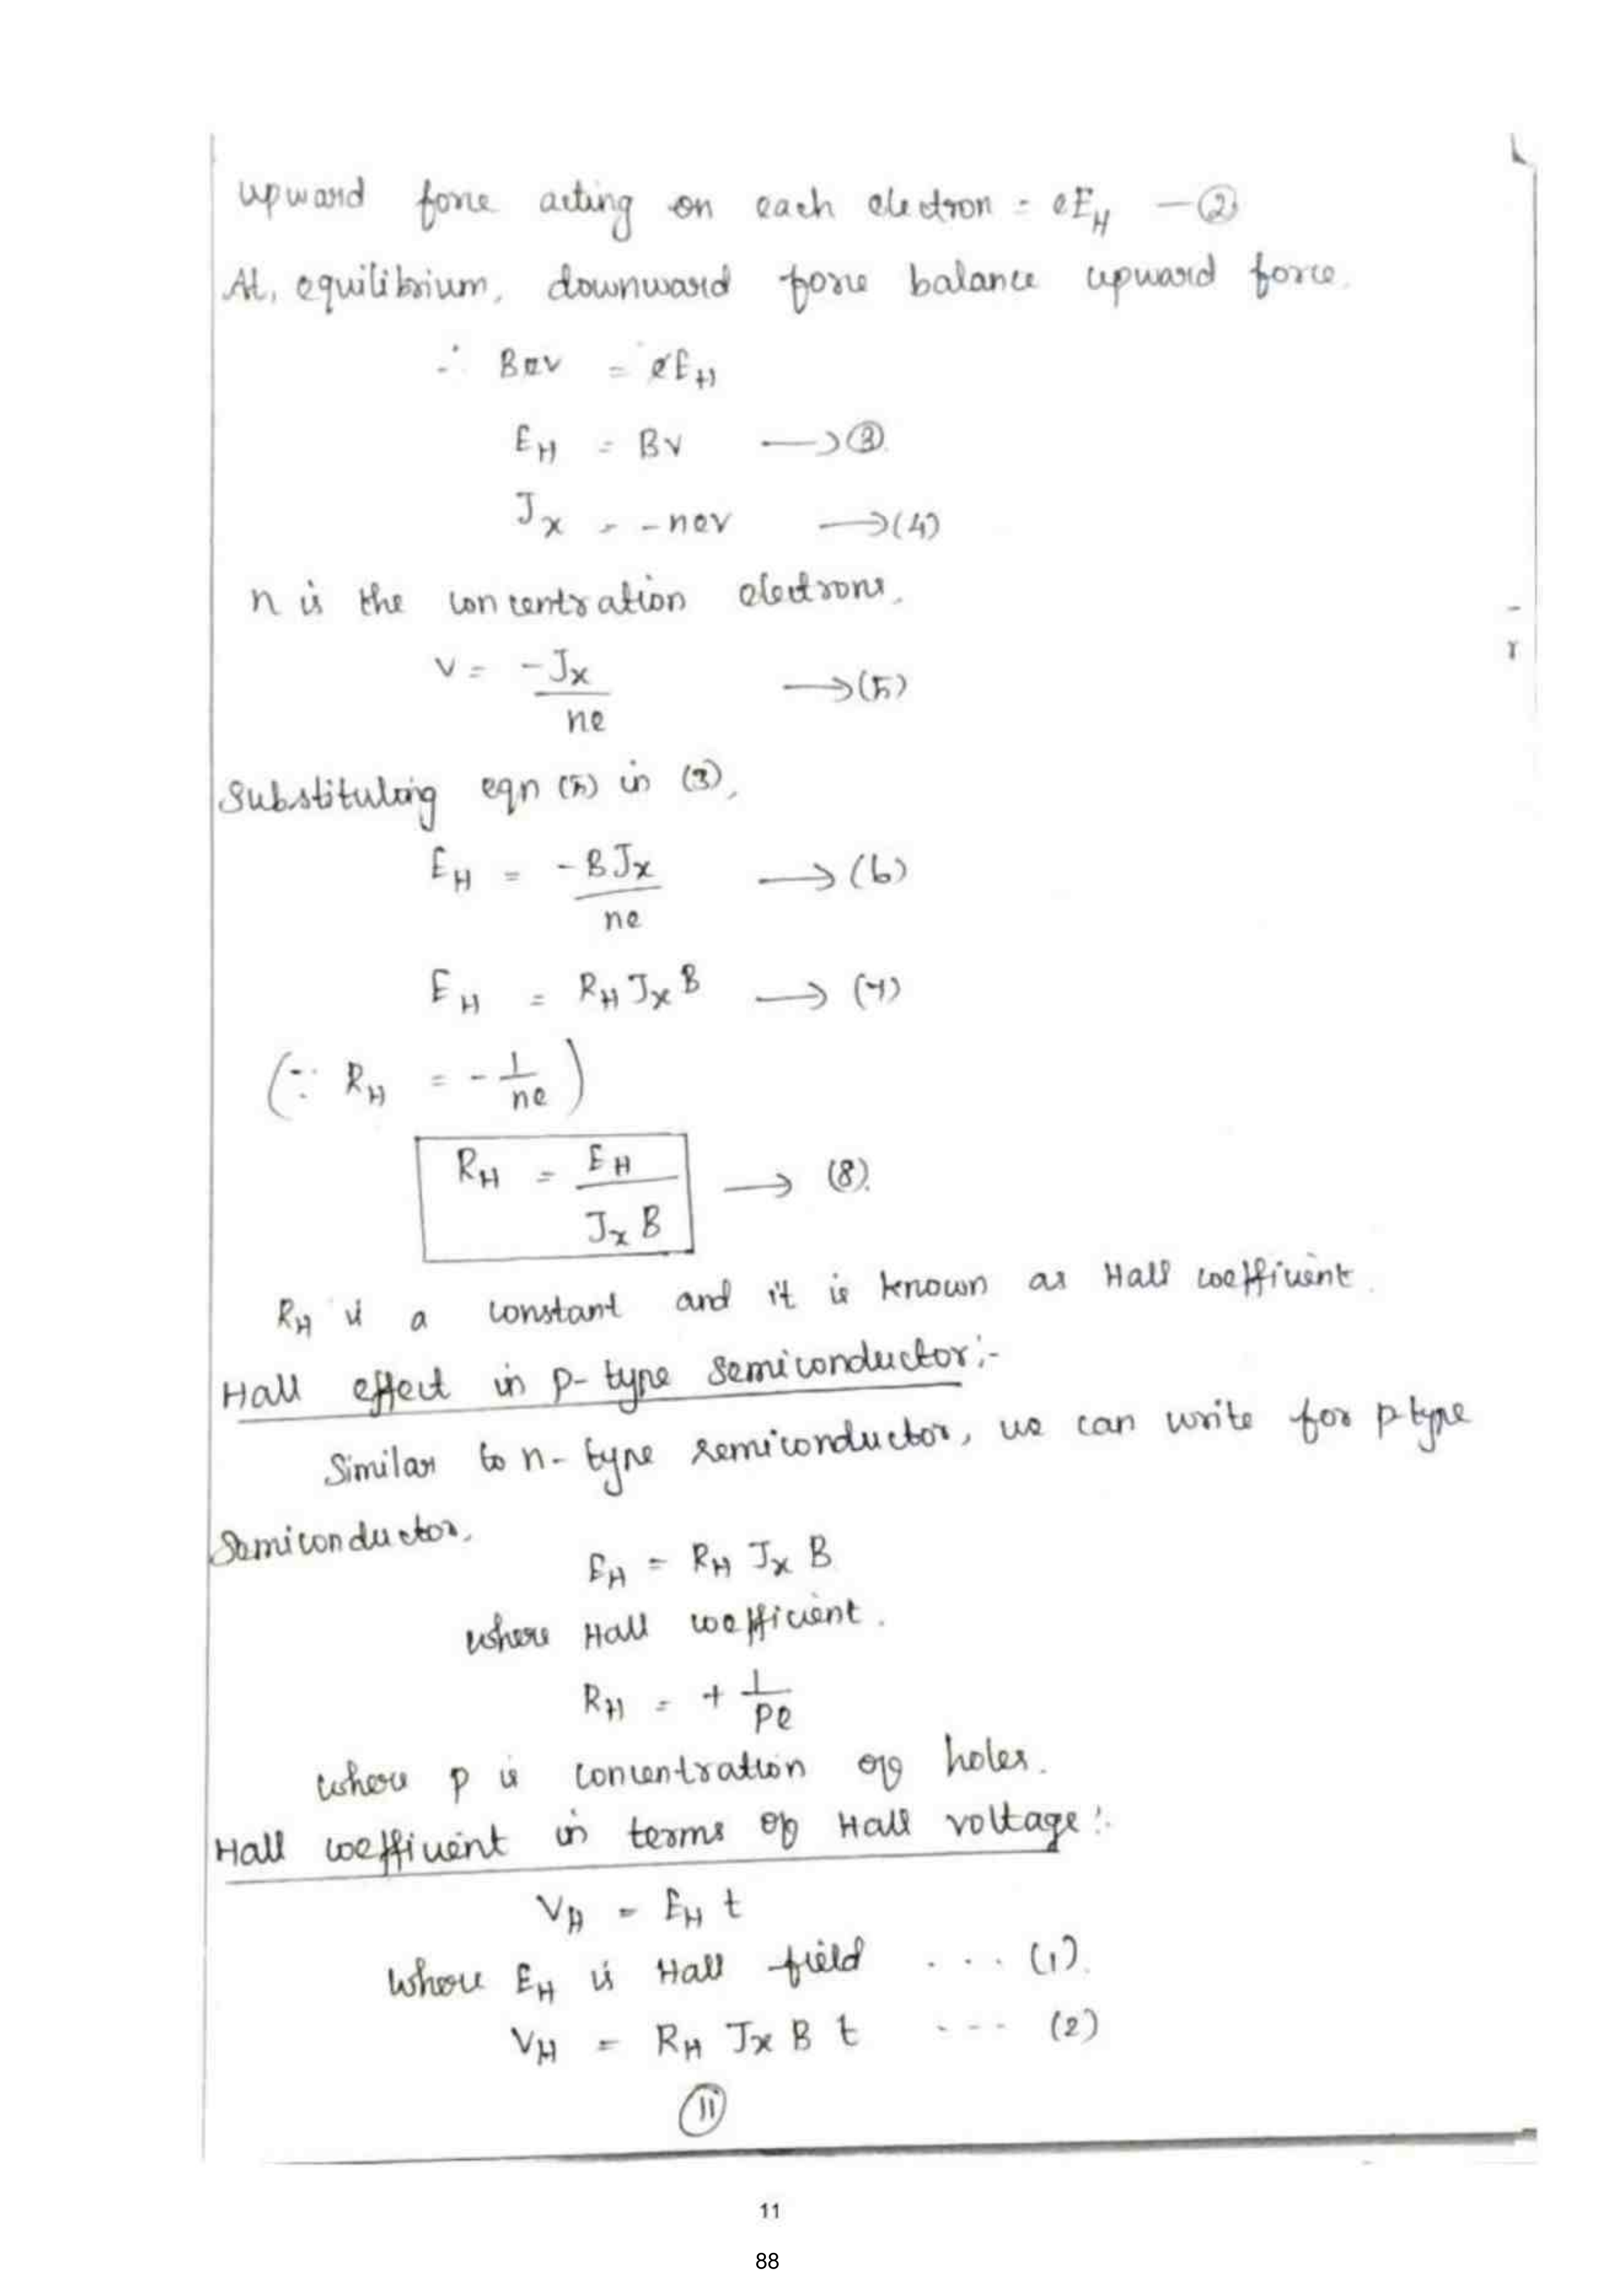 upward force acting on each electron = eE_H — (2)
At, equilibrium, downward force balance upward force.
∴ Bev = eE_H
E_H = Bv → (3)
J_x = -nev → (4)
n is the concentration electrons.
v = -J_x / ne → (5)
Substituting eqn (5) in (3),
E_H = -BJ_x / ne → (6)
E_H = R_H J_x B → (7)
(∵ R_H = - 1/ne)
R_H = E_H / J_x B → (8).
R_H is a constant and it is known as Hall coefficient.
Hall effect in p-type semiconductor:-
Similar to n-type semiconductor, we can write for p-type
Semiconductor,
E_H = R_H J_x B
where Hall coefficient.
R_H = + 1/pe
where p is concentration of holes.
Hall coefficient in terms of Hall voltage:
V_H = E_H t
where E_H is Hall field ... (1).
V_H = R_H J_x B t ... (2)
11
11
88